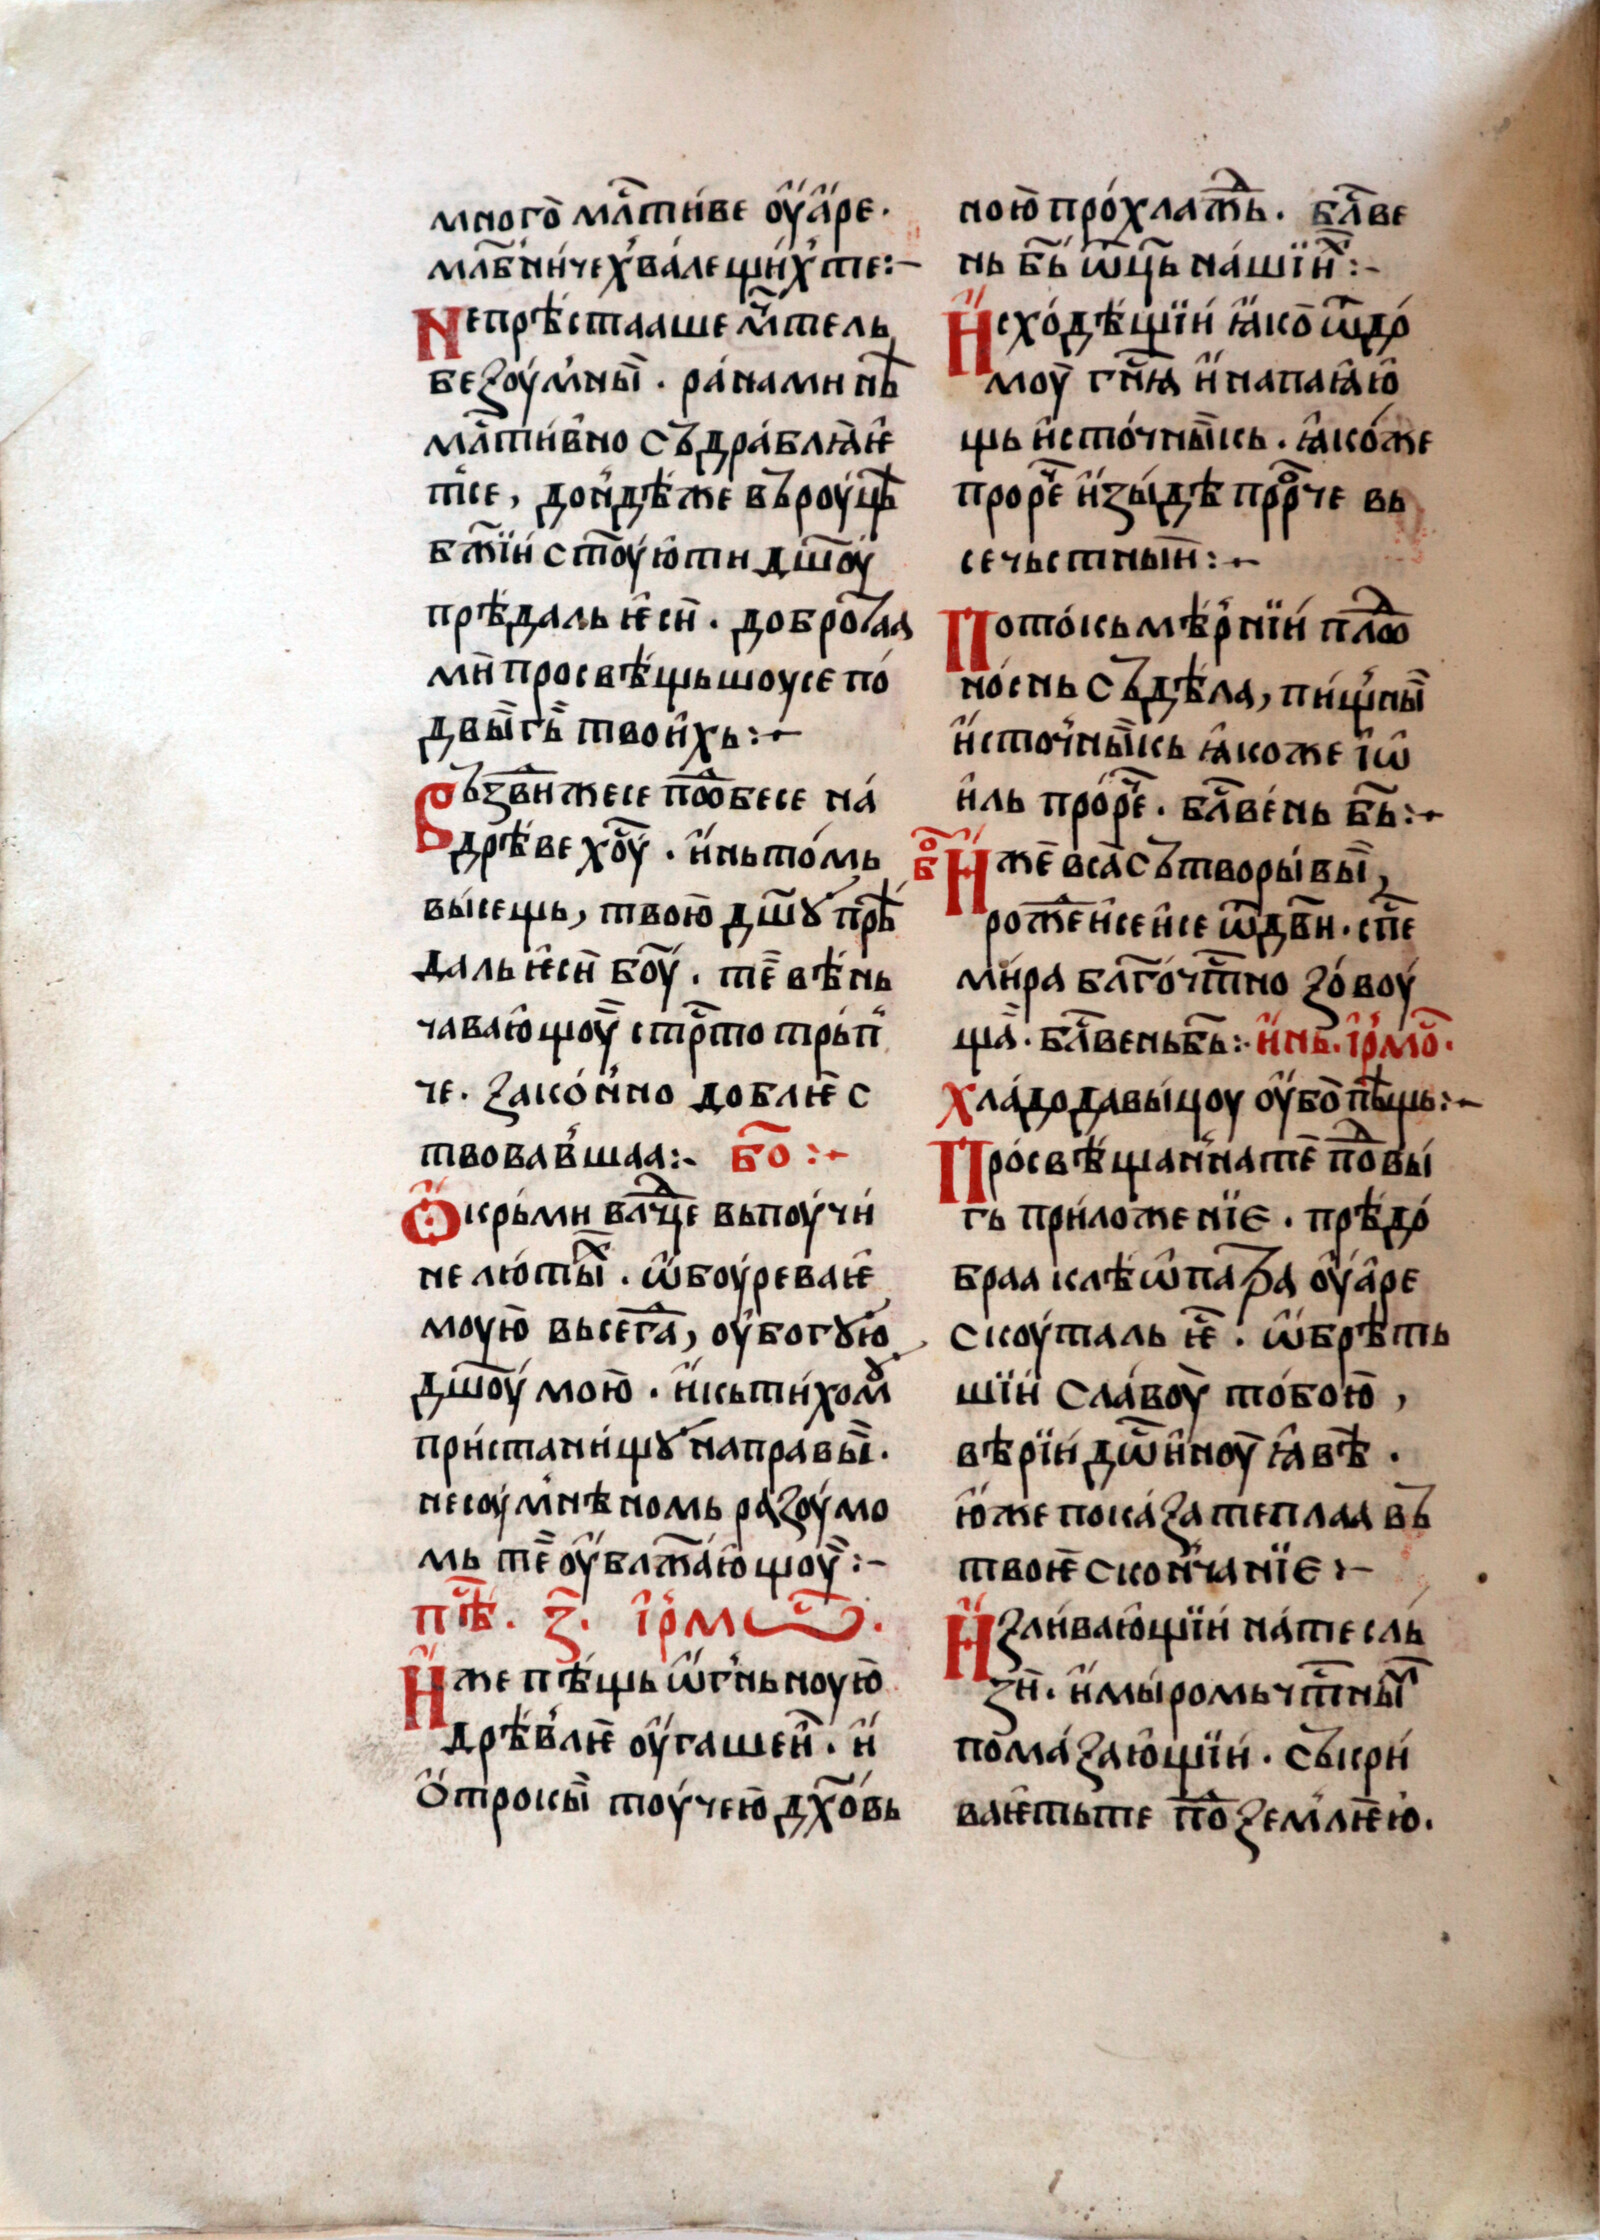 многѡ̑ млⷭ҇тиве ᲂу҆а́ре·
млб҃ни́че хва́лещи́х те:–
Непрѣстааше мⷱ҇тель
беꙁоумны̏· ра́нами нь̏
млⷭ҇ти́вно съдра́блꙗѥ
тсе, дои́дѣже въ роу́цѣ
бж҃їи ст҃оую ти дш҃оу
прѣдаль ѥси̏· добротаа
ми̏ просвѣщьшоусе по́
двы̏гь̏ твои́хь:~
Въꙁвиⷤжесе пⷣобесе на́
дрѣве хо҃у· и҆ нь то́мь
вы́сещь, твою̏ дш҃ꙋ прѣ
даль ѥси̏ бо҃у· те̏ вѣнь
чаваюшоу̏ стрⷭ҇то трьпⷱ
че· ꙁако́нно доблѥ с
твовавшаа:~ бо҃:~
Ѻкрьми влⷣче вьпоучи́
не лю́ты̏ⷯ· ѡ҆боуреваѥ
моую̏ высегⷣа, оубогꙋю
дш҃оу мою̏· и҆ кь ти́хомꙋ
приста́ни́щꙋ направы̏·
несоумнѣномь раꙁоумо
мь те̏ оублⷤажаю щоу̏:~
пⷭ҇ѣ· ꙁ҃· і҆рмⷭ҇ѡ·
И҆же пѣщь ѡ҆гньноую̏
дрѣвлѥ оугашен̏· и҆
ѻ҆трокы̏ тоу́чею дх҃ѡ́вь
ною̏ про́хлажⷣь· блⷭ҇ве
нь бь҃ ѡц҃ь на́шїиⷯ:~
И҆схо́дѣщїи ꙗ҆ко ѿ дрѡ́
моу̏ гнꙗ и҆ напаꙗю
щь и҆сто́чны̏кь· ꙗ҆ко́же
прорⷱ҇е и҆ꙁы́дѣ прⷪ҇рче вь
сечьстныи̏:~
Пото́кь мѣ́рнїи плⷣоо
но́снь съдѣла, пи́щны̏
и҆сточны̏кь ꙗ҆коже і҆ѡ
и҆ль прорⷱ҇е· блⷭ҇ве́нь бь҃:~
бⷪ И҆же̏ всꙗ̏ сътворы́вы̏,
рожⷣеи҆се и҆се ѿ дв҃и· сп҃се
ми́ра блгⷪ҇чтⷭ҇но ꙁо́воу
ща̏· блⷭ҇вень бь҃:· и҆нь· і҆рмⷪ҇·
Хла́дода́вы́цоу оубо̏ пѣщь:~
Просвѣща́нна те̏ пⷣовы́
гь приложе́нїе· прѣдо́
браа клѣѡпатра оуаре
скоу́таль ѥ̏· ѡ҆брѣть
шїи сла́воу̏ тобою̏,
вѣрїи дѡ҃иноу̏ ꙗвѣ̏·
ю҆же пока́ꙁа теплаа въ
твоѥ скончанїе:~
И҆ꙁли́ваю́щїи на́ те слы
ꙁи̏· и҆ мы́ромь чтⷭ҇ны́мⷨ
пома́ꙁаю́щїи· съкри́
ваѥть те поⷣ ꙁемлѥю·